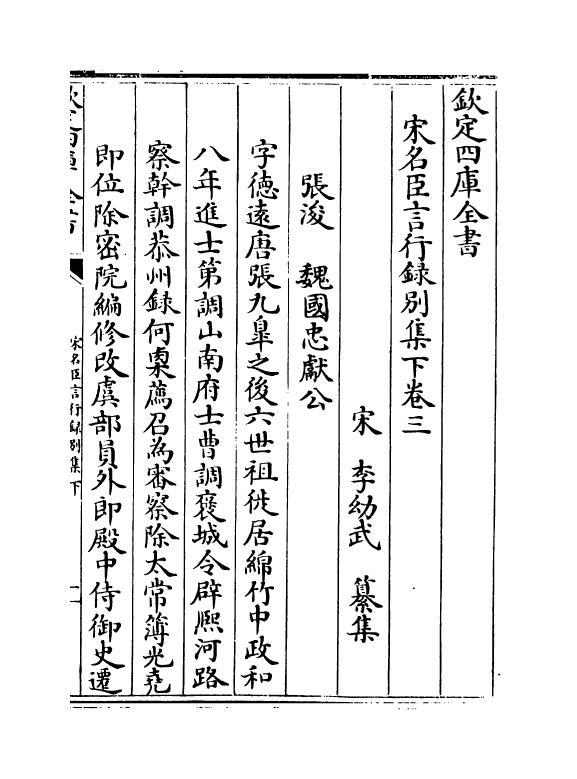 欽定四庫全書
宋名臣言行録别集下卷三
宋 李幼武 纂集
張浚 魏國忠獻公
字德逺唐張九臯之後六世祖徙居綿竹中政和
八年進士第調山南府士曹調褒城令辟熈河路
察幹調㳟州録何㮚薦召為審察除太常簿光堯
即位除密院編修改虞部員外郎殿中侍御史遷
宋名臣言行録别集下